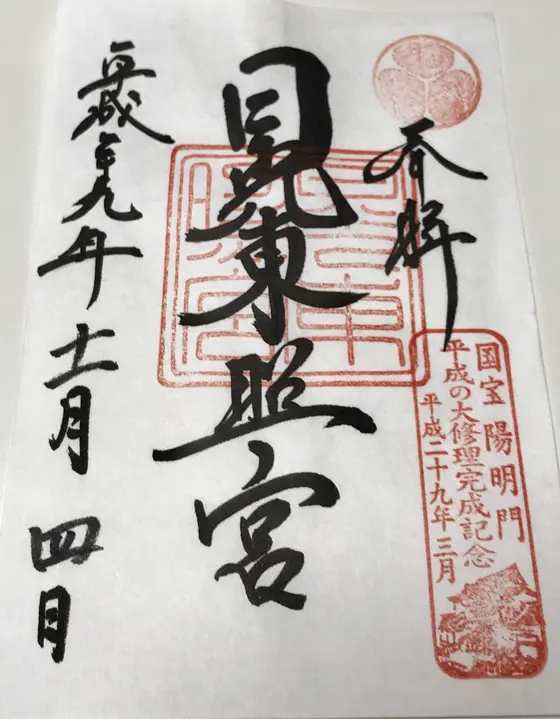 奉拝
国宝 陽明門
平成の大修理完成記念
平成二十九年三月
日光東照宮
平成廿九年十二月四日